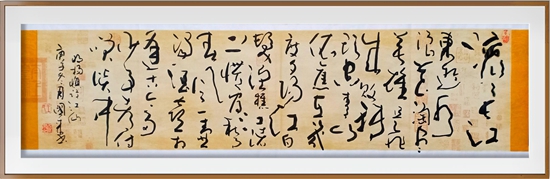 滚滚长江
东逝水
浪花淘尽
英雄是非
成败转
头空青山
依旧在几
度夕阳红白
发渔樵江渚
上惯看秋月
春风一壶
浊酒喜相
逢古今多
少事都付
笑谈中
明杨慎临江仙
庚子冬月国